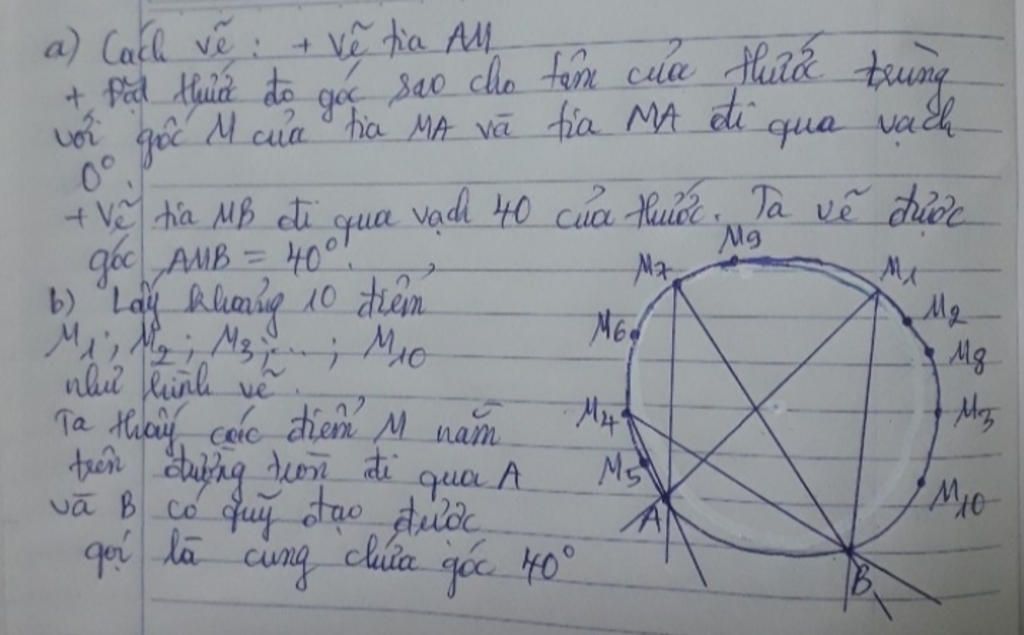 a) Cách vẽ : + Vẽ tia AM
+ Đặt thước đo góc sao cho tâm của thước trùng
với gốc M của tia MA và tia MA đi qua vạch
0°.
+ Vẽ tia MB đi qua vạch 40 của thước. Ta vẽ được
góc AMB = 40°.
b) Lấy khoảng 10 điểm
M1 ; M2 ; M3 ; ... ; M10
như hình vẽ.
Ta thấy các điểm M nằm
trên đường tròn đi qua A
và B có quỹ đạo được
gọi là cung chứa góc 40°
M9
M7
M1
M6
M2
M8
M4
M3
M5
M10
A
B